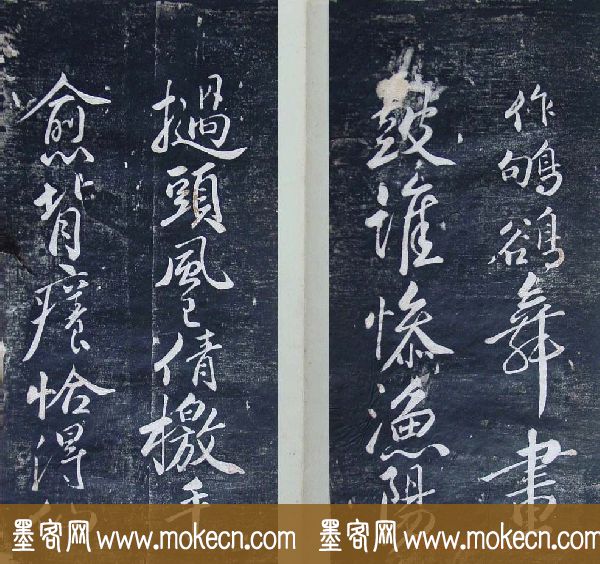 作鴝鵒舞畫
鼓誰慘漁陽
撾頭風已倩檄手
愈背癢恰得
墨客网 www.mokecn.com 墨客网 www.mokecn.com